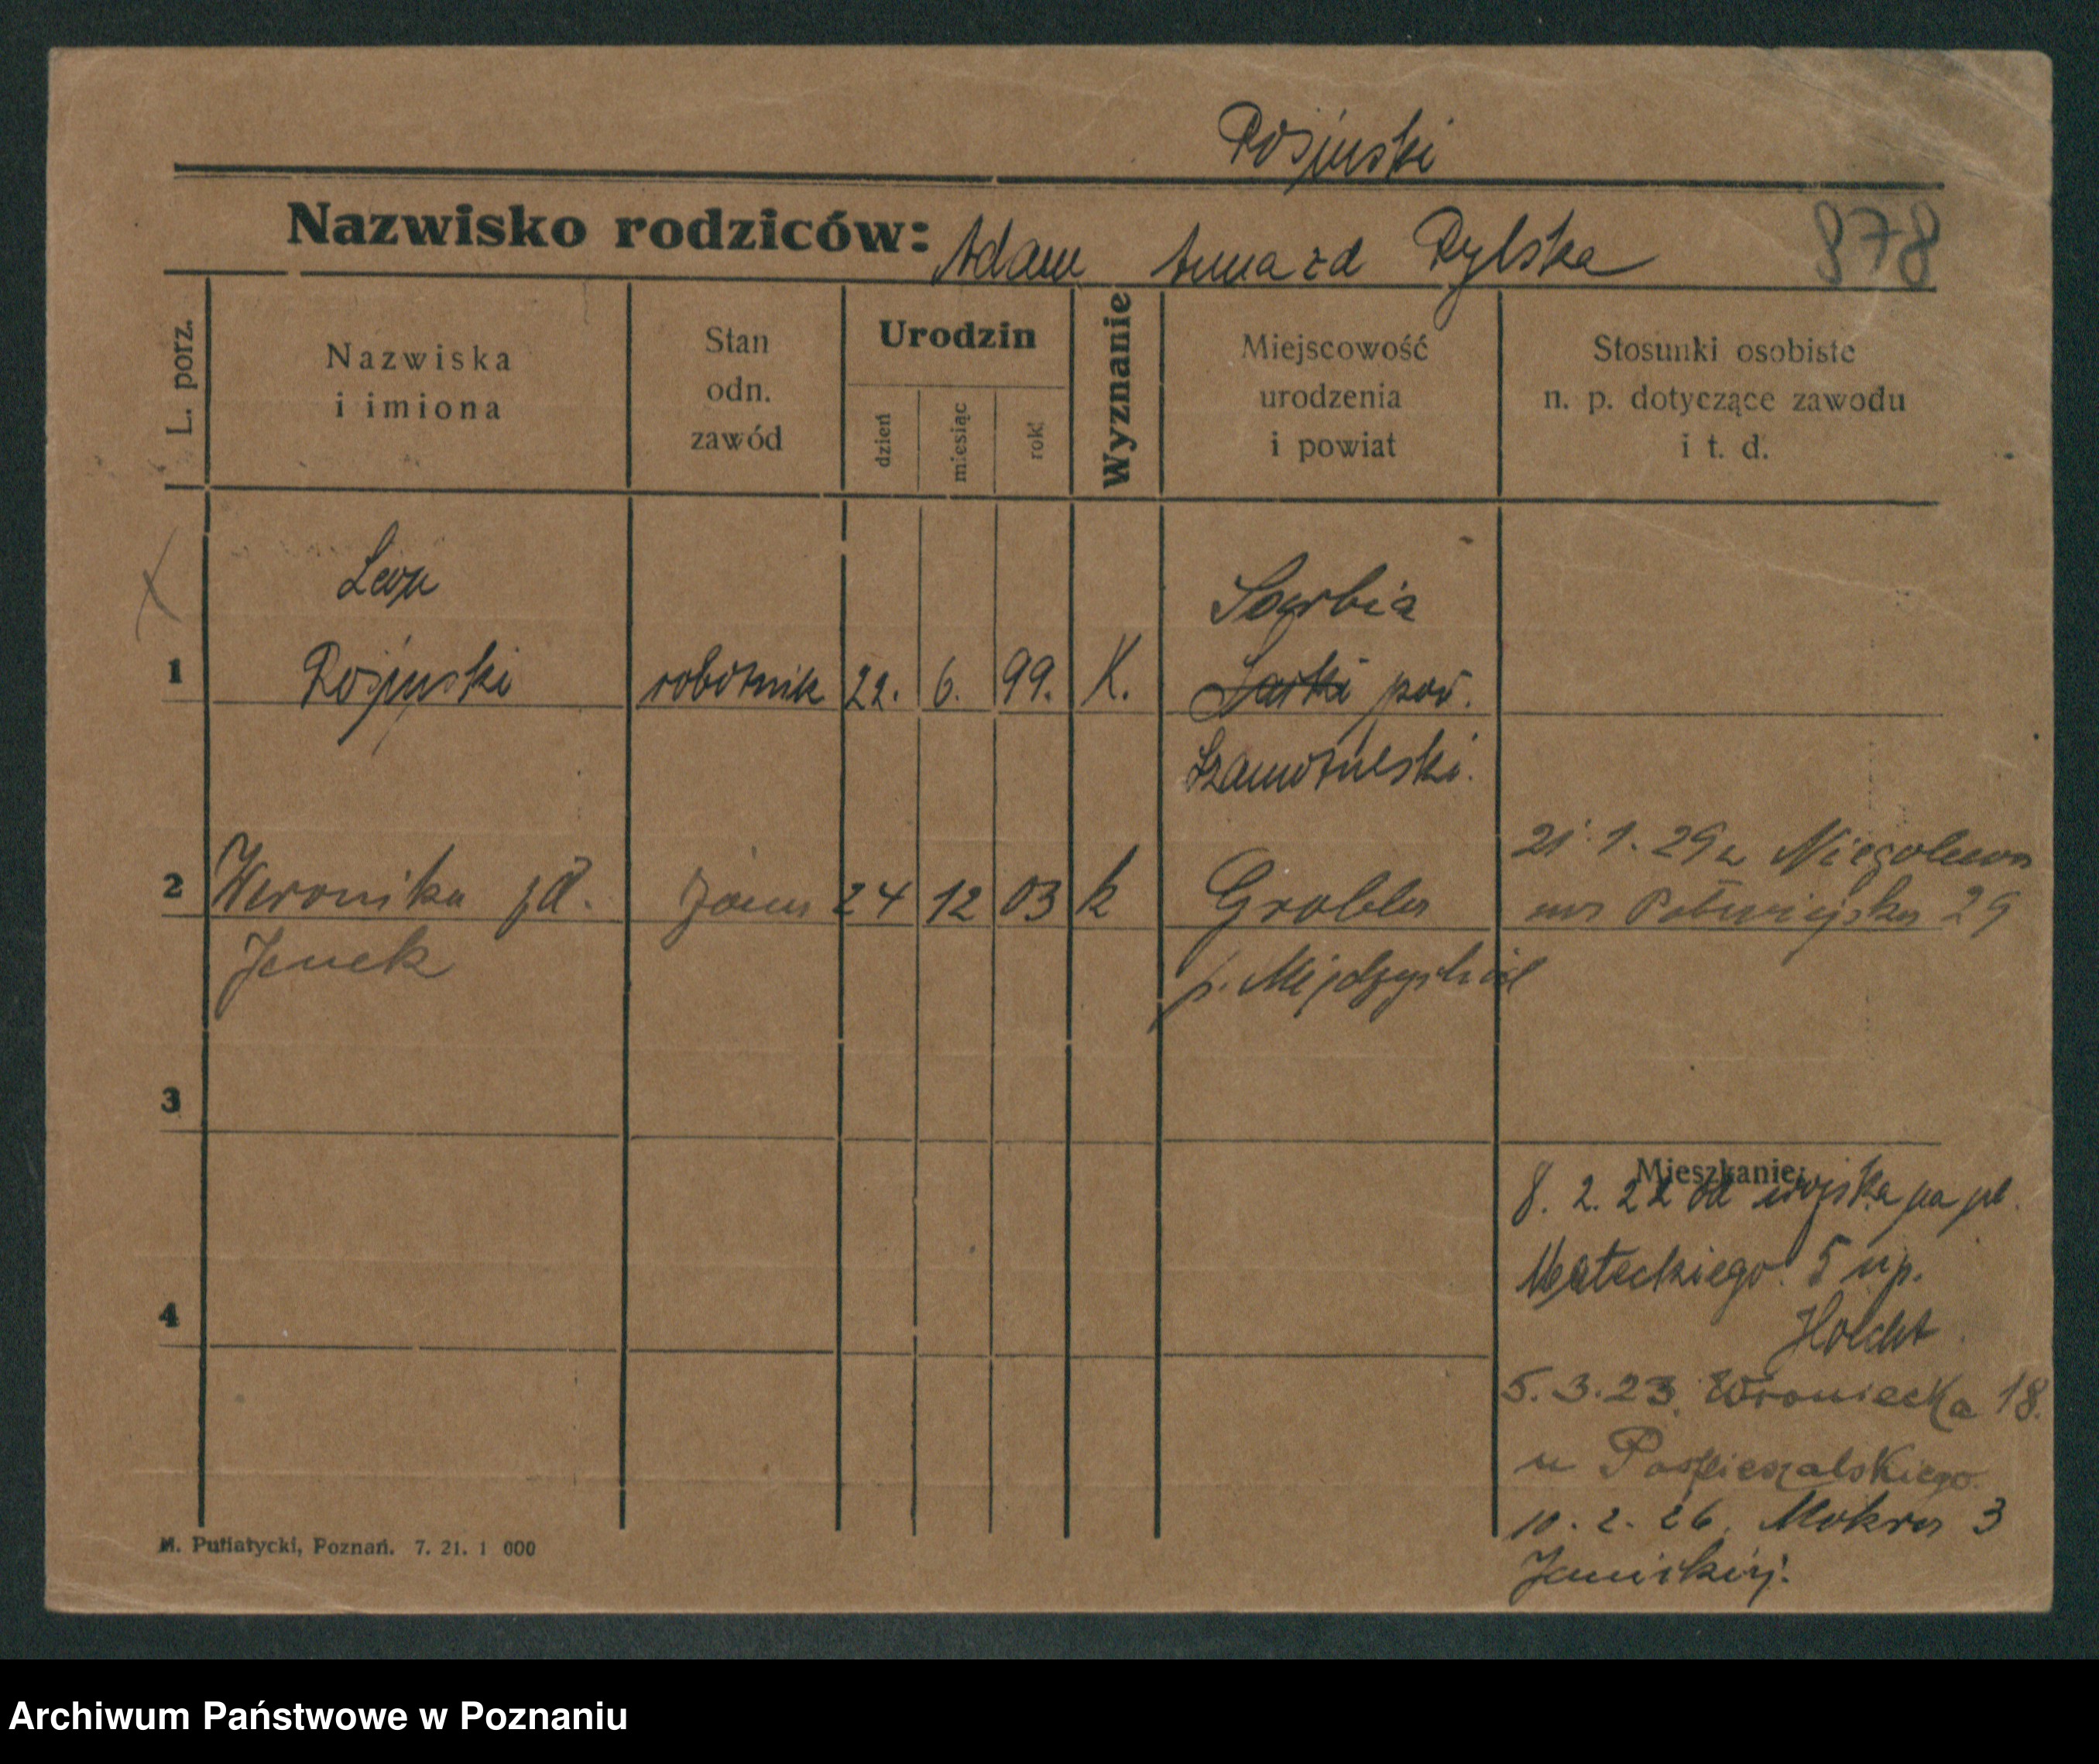 Rosiński
Nazwisko rodziców: Adam Anna zd Rylska
878
L. porz.
Nazwiska
i imiona
Stan
odn.
zawód
Urodzin
dzień
miesiąc
rok
Wyznanie
Miejscowość
urodzenia
i powiat
Stosunki osobiste
n. p. dotyczące zawodu
i t. d.
Leon
1 Rosiński robotnik 22. 6. 99. K.
Serbia
pow.
Szamotulski.
2 Weronika zd. żona 24 12 03 k
Jenek
p. Międzychód
21.1.29 z Niegolewa
na Półwiejska 29
3
4
Mieszkanie:
8. 2. 22 od wojska na pl.
5 u p.
5.3.23. Wroniecka 18.
u Pospieszalskiego.
10.2.26. Mokra 3
M. Putiatycki, Poznań. 7. 21. 1 000
Archiwum Państwowe w Poznaniu